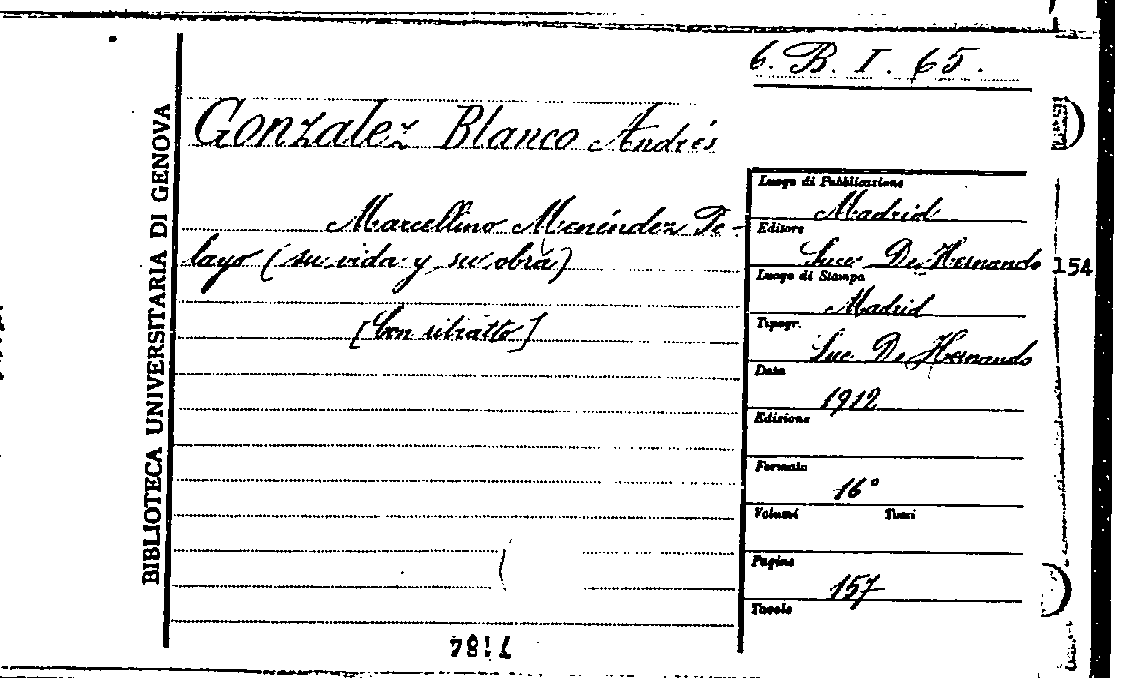 6. B. I. 65.
BIBLIOTECA UNIVERSITARIA DI GENOVA
Gonzalez Blanco Andrés
Marcellino Menéndez Pe-
layo (su vida y su obra)
[Con ritratto]
Luogo di Pubblicazione
Madrid
Editore
Suc. De Hernando
154
Luogo di Stampa
Madrid
Tipogr.
Suc. De Hernando
Data
1912
Edizione
Formato
16°
Volumi Tomi
Pagine
157
Tavole
7184